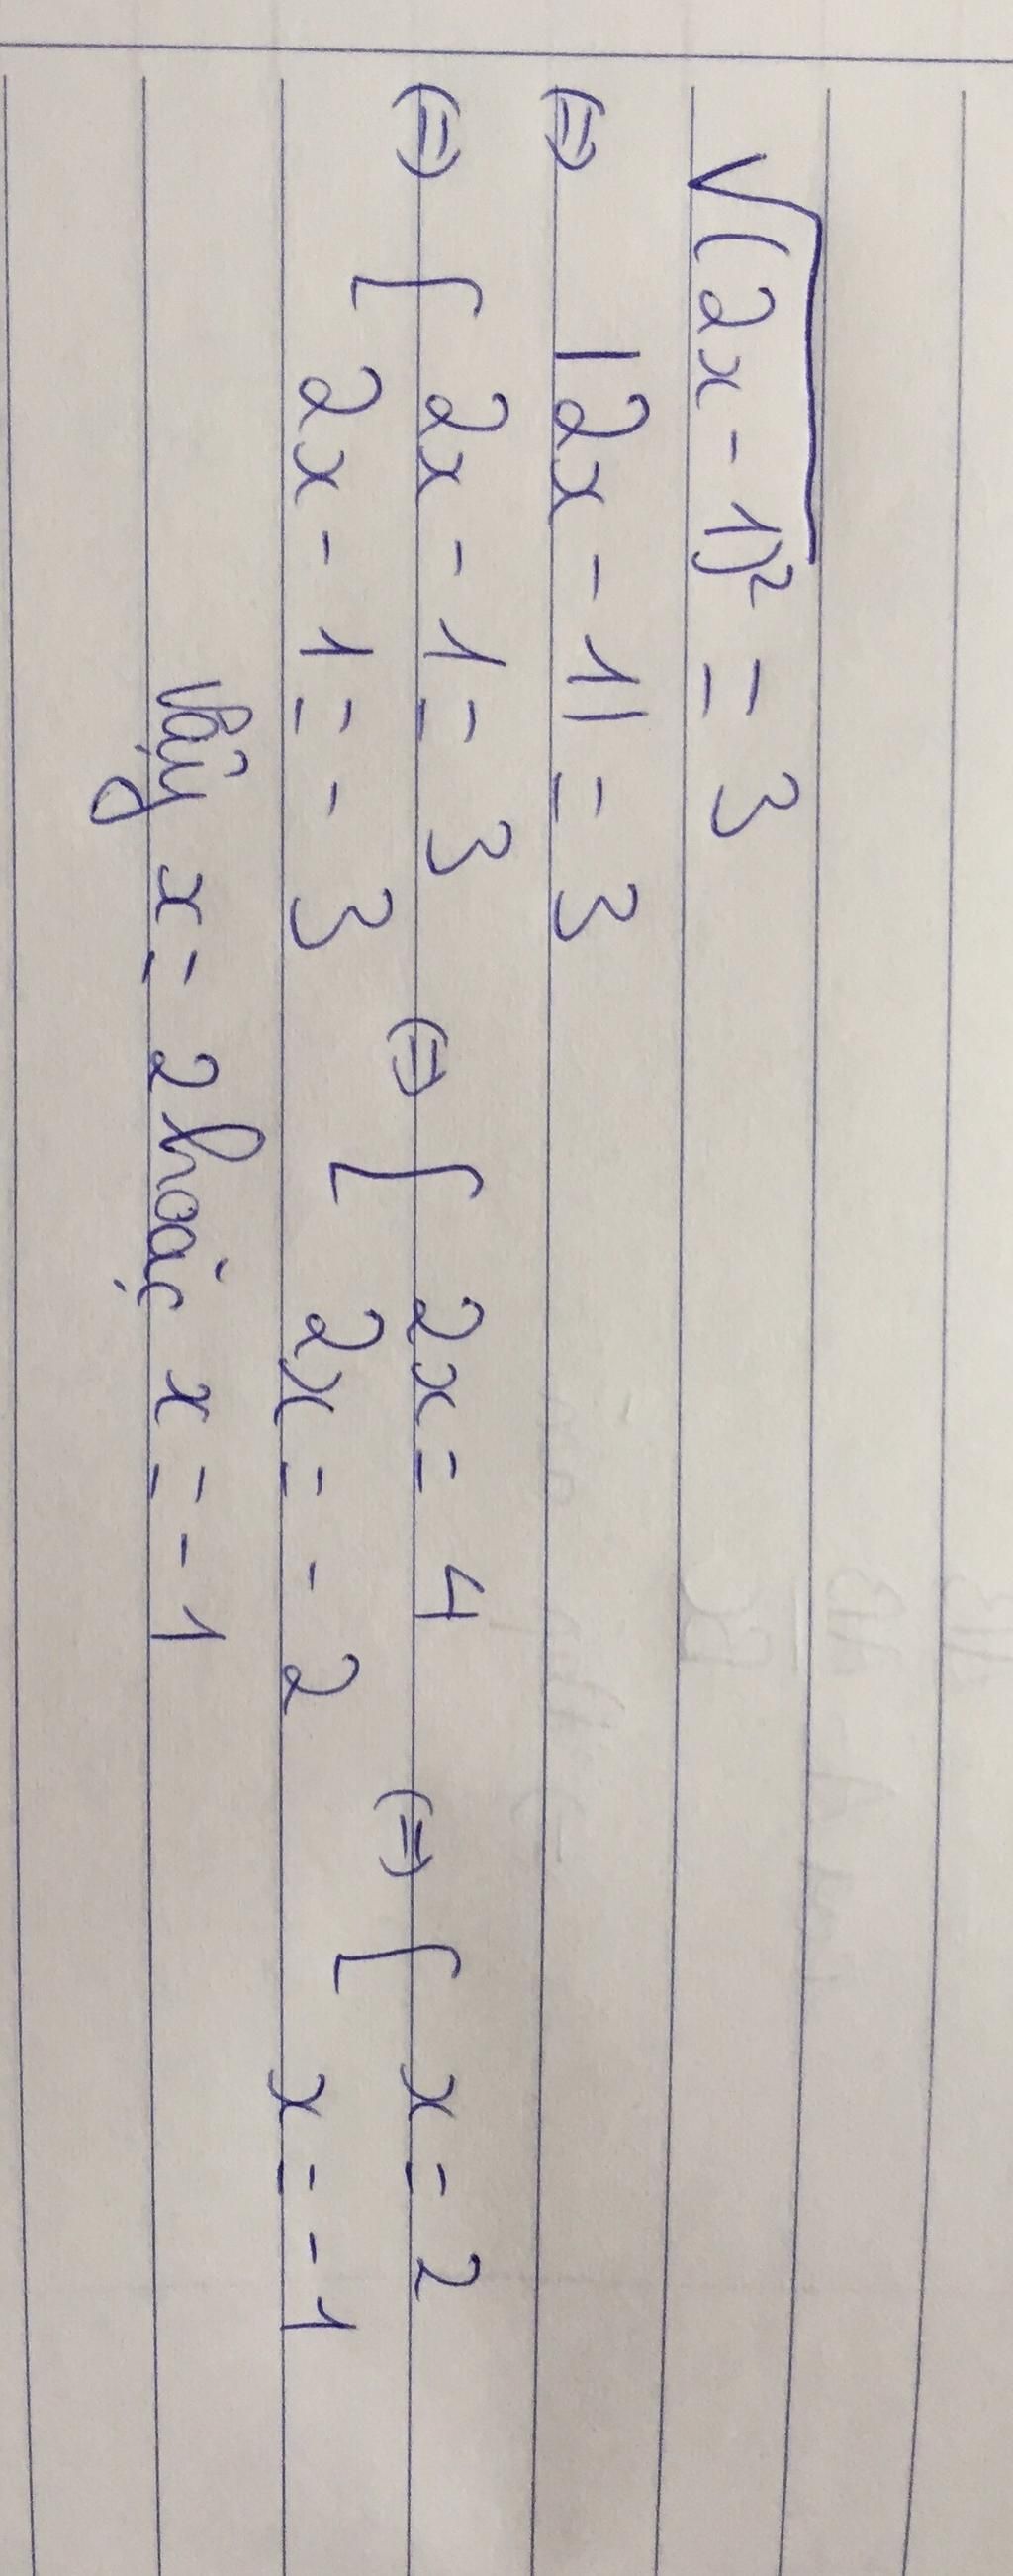 √(2x - 1)² = 3
(=) |2x - 1| = 3
(=) [ 2x - 1 = 3 (=) [ 2x = 4 (=) [ x = 2
2x - 1 = - 3 2x = - 2 x = - 1
Vậy x = 2 hoặc x = - 1